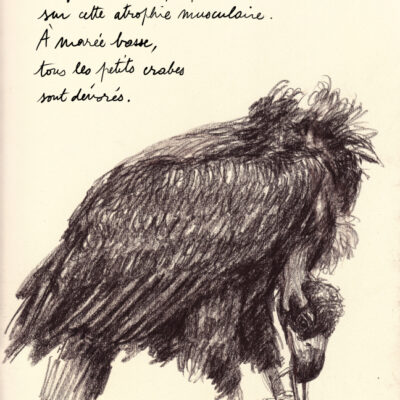 sur cette atrophie musculaire.
À marée basse,
tous les petits crabes
sont dévorés.